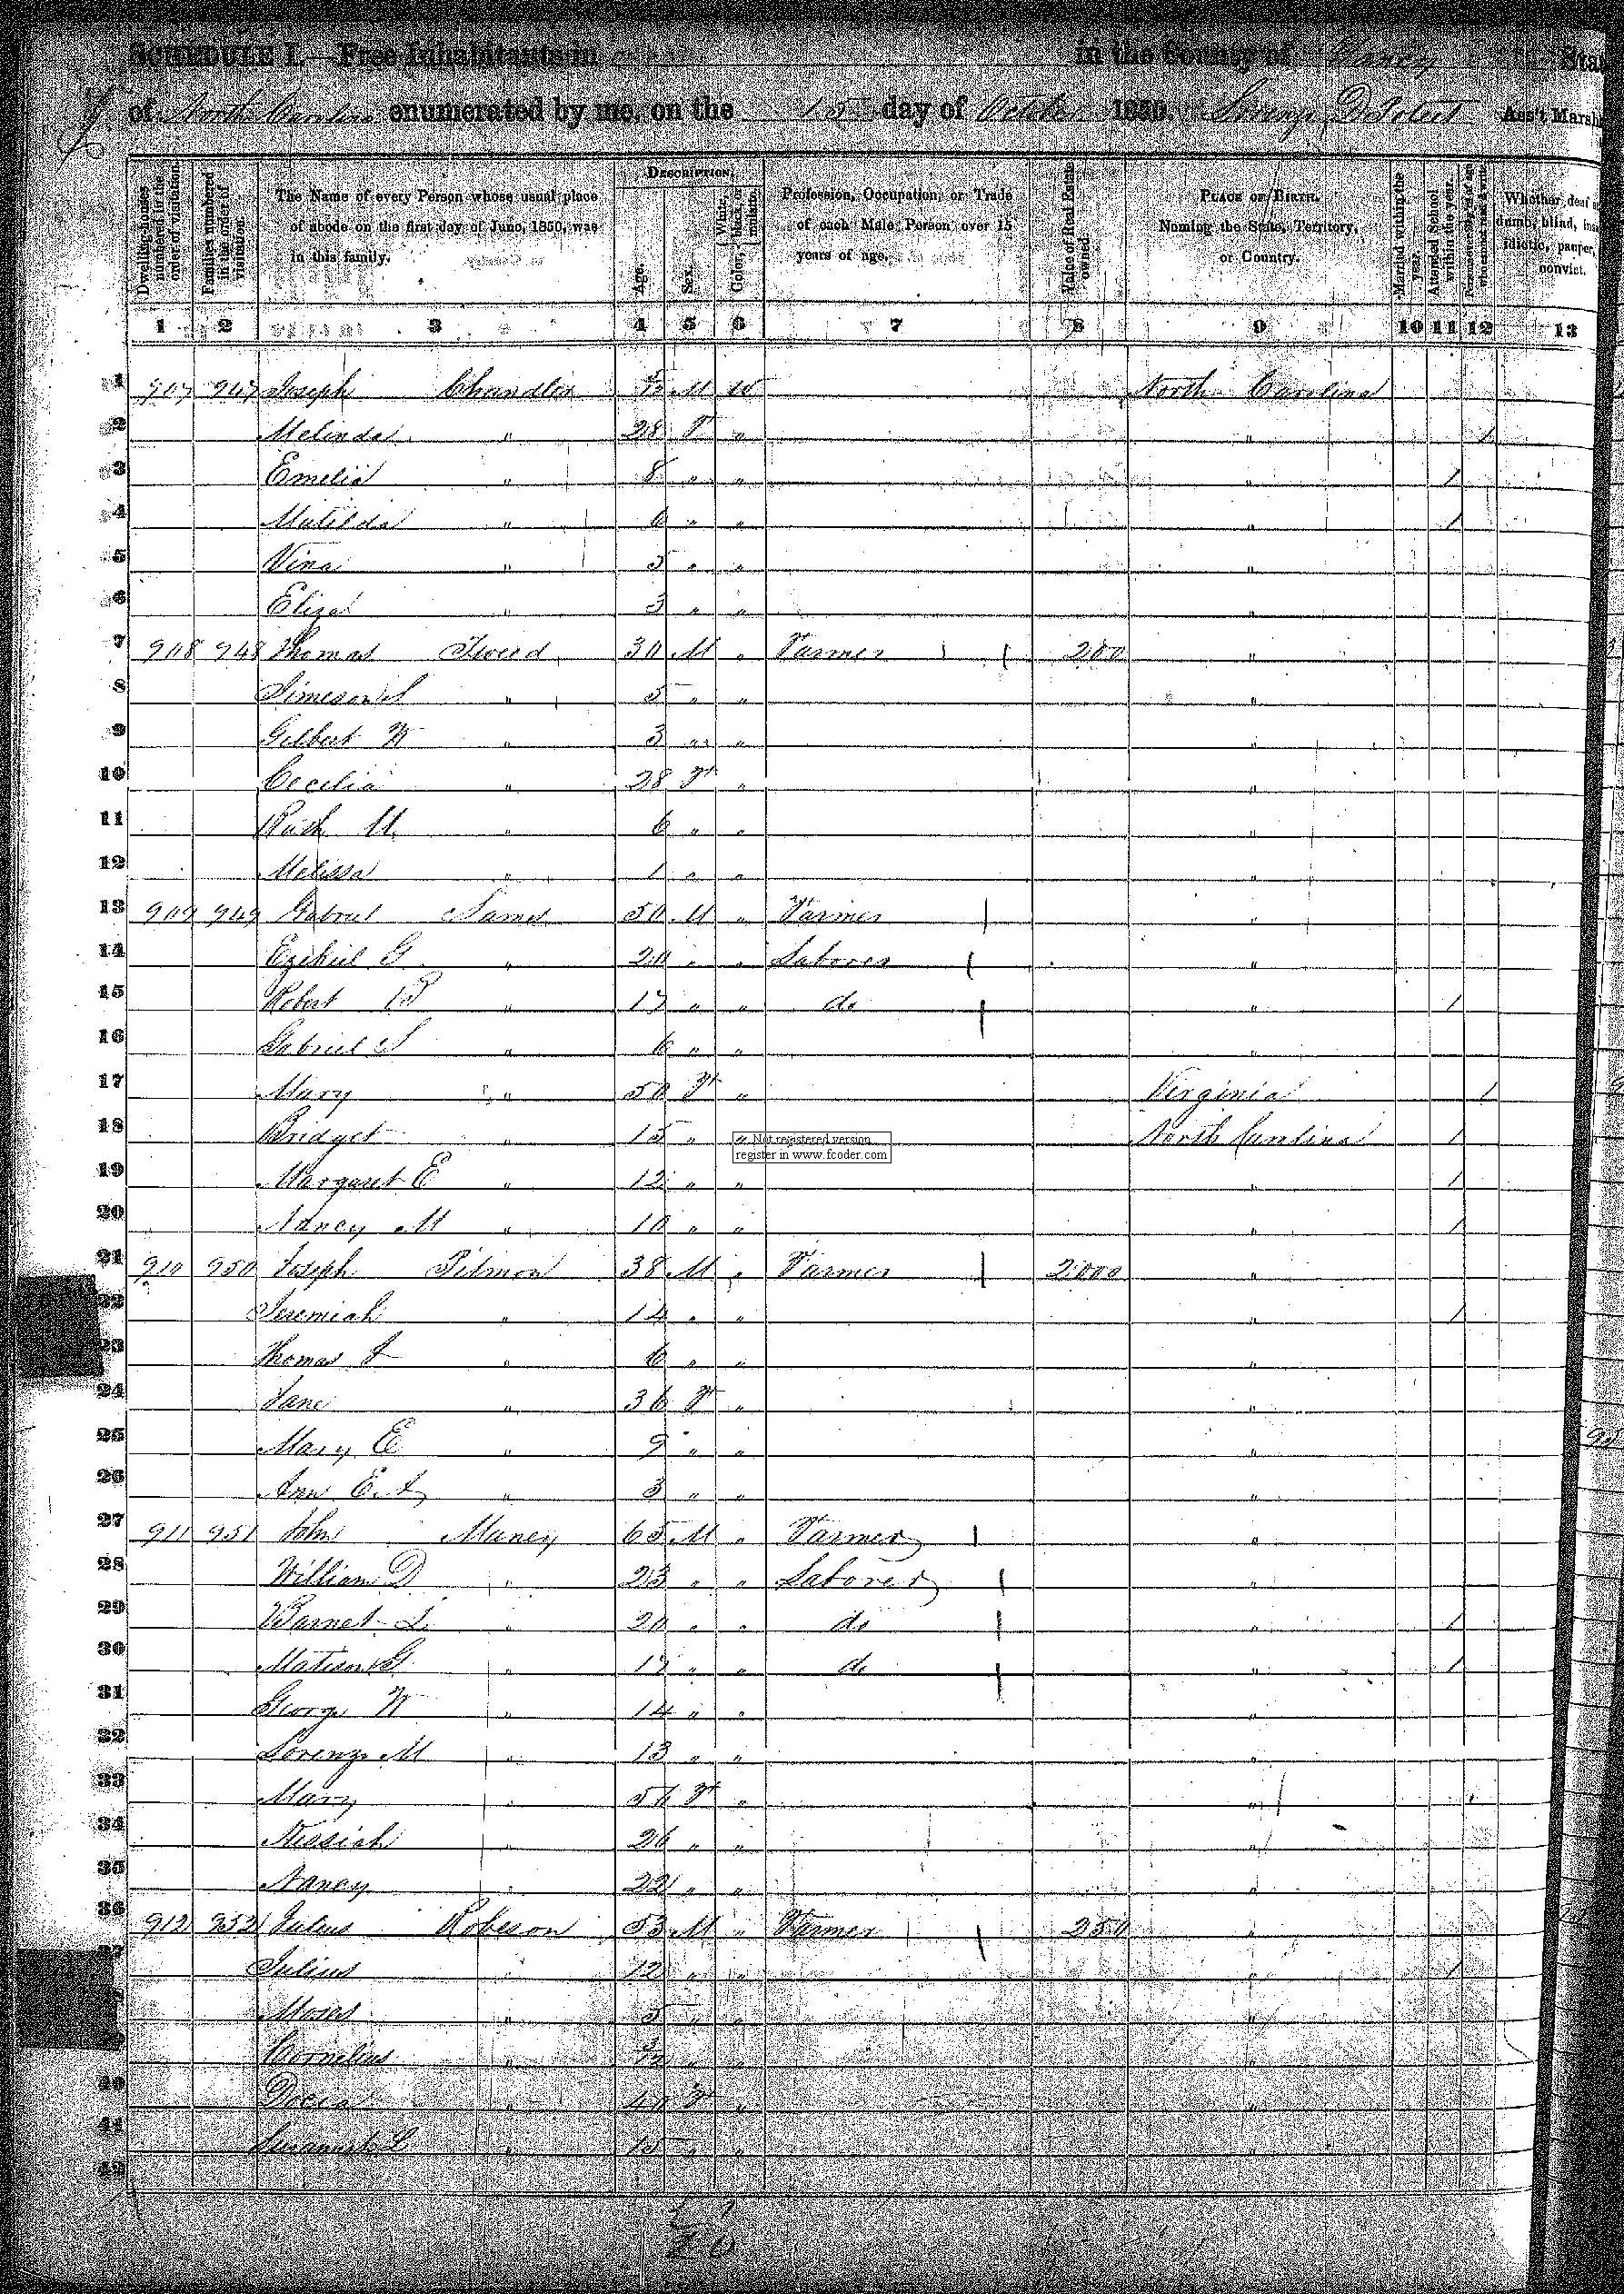 SCHEDULE I.—Free Inhabitants in in the County of Yancy State
of North Carolina enumerated by me, on the 15 day of October 1850. Ass't Marshal
Dwelling-houses numbered in the order of visitation.
Families numbered in the order of visitation.
The Name of every Person whose usual place of abode on the first day of June, 1850, was in this family.
DESCRIPTION.
Age.
Sex.
Color, White, black or mulatto.
Profession, Occupation, or Trade of each Male Person over 15 years of age.
Value of Real Estate owned.
PLACE OF BIRTH. Naming the State, Territory, or Country.
Married within the year.
Attended School within the year.
Whether deaf dumb, blind, idiotic, pauper, convict.
1 2 3 4 5 6 7 8 9 10 11 12 13
1 907 947 Joseph Chandler M W North Carolina
2 Melinda " 28 F " " 1
3 Emelia " 8 " " " 1
4 Matilda " 6 " " " 1
5 Vina " 5 " " "
6 Eliza " 3 " " "
7 908 948 Thomas Tweed 30 M " Farmer 200 "
8 Simeson S " 5 " " "
9 Gilbert W " 3 " " "
10 Cecelia " 28 F " "
11 Ruth M " 6 " " "
12 Melissa " 1 " " "
13 909 949 Gabriel 50 M " Farmer "
14 Ezekiel G " 20 " " Laborer "
15 Robert P " 17 " " do " 1
16 Gabriel S " 6 " " "
17 Mary " 50 F " Virginia 1
18 Bridget 15 " " North Carolina 1
Not registered version
register in www.fcoder.com
19 Margaret E " 12 " " " 1
20 Nancy M " 10 " " " 1
21 910 950 Joseph Pitmon 38 M " Farmer 2000 "
22 Jeremiah " 14 " " " 1
23 Thomas J " 6 " " "
24 Jane " 36 F " "
25 Mary E " 9 " " "
26 Ann E. A " 3 " " "
27 911 951 John Maney 65 M " Farmer "
28 William D " 23 " " Laborer "
29 Barnet L " 20 " " do " 1
30 Matison G " 17 " " do " 1
31 George W " 14 " " "
32 Lorenzo M " 13 " " "
33 Mary " F " "
34 Kissiah " 26 " " "
35 Nancy " 22 " " "
36 912 952 Julius Robeson 53 M " Farmer 250 "
37 Julius " 12 " " " 1
38 Moses " 5 " " "
39 Cornelius " " " "
40 Docia " 40 F " "
41 L " 15 " " "
42